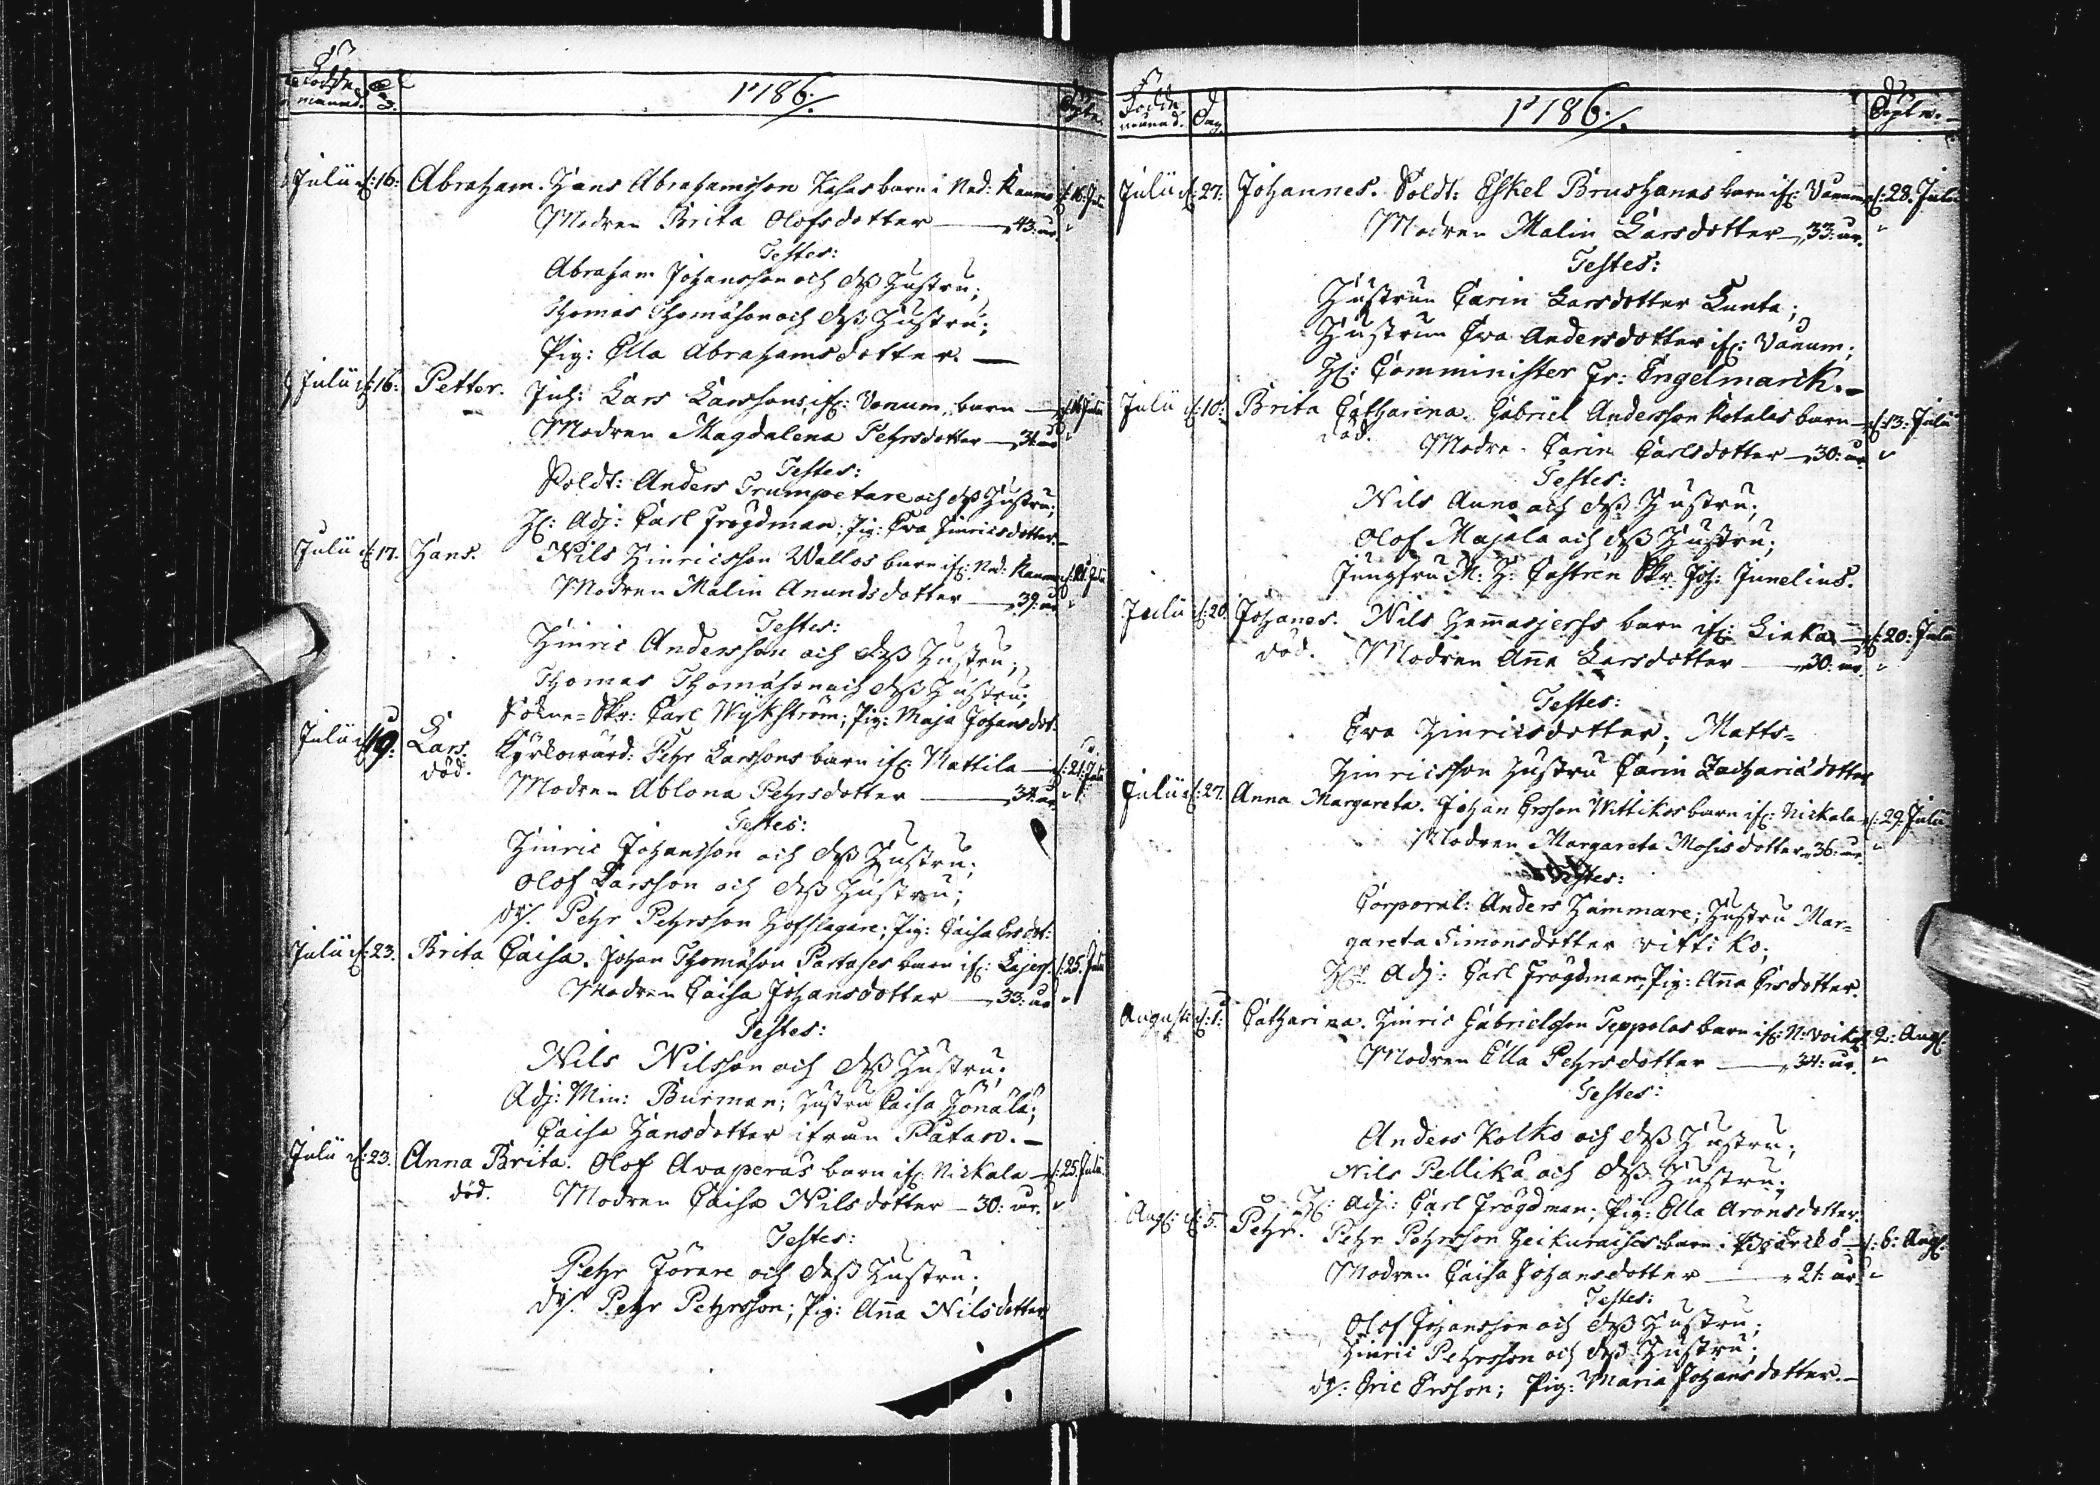 Födde månad. Dag.
1786.
Döpte.
Julii d: 16: Abraham. Hans Abrahamsson Hasas barn i Ned: Kaunis d: 16: Julii
Modren Brita Olofsdotter — 43: år.
Testes:
Abraham Johansson och dess Hustru;
Thomas Thomæson och dess Hustru;
Pig: Ella Abrahamsdotter. —
Julii d: 16: Petter. Inh: Lars Larssons, ifr: Vanum, barn — d: 16 Julii
Modren Magdalena Pehrsdotter — 31: år
Testes:
Soldt: Anders Trumpetare och dess Hustru;
Hr: Adj: Carl Frögdman; Pig: Eva Hinricsdotter. —
Julii d: 17. Hans. Nils Hinricsson Wallos barn ifr: Ned: Kaunis d: 18 Julii
Modren Malin Anundsdotter — 39: år
Testes:
Hinric Andersson och dess Hustru;
Thomas Thomæson och dess Hustru;
Sokne-Skr: Carl Wykström; Pig: Maja Johansdot:
Julii d: 19. Lars. Kyrkowärd: Pehr Larssons barn ifr: Mattila — d: 21: Julii
död. Modren Ablona Pehrsdotter — 34: år
Testes:
Hinric Johansson och dess Hustru;
Olof Larsson och dess Hustru;
dr: Pehr Pehrsson Hofslagare; Pig: Caisa Ersdot:
Julii d: 23. Brita Caisa. Johan Thomæson Partases barn ifr: Lajers. d: 25. Julii
Modren Caisa Johansdotter — 33: år
Testes:
Nils Nilsson och dess Hustru;
Adj: Min: Burman; Hustru Caisa Hönälä;
Caisa Hansdotter ifrån Patan. —
Julii d: 23. Anna Brita. Olof Avaperäs barn ifr: Nickala — d: 25. Julii
död. Modren Caisa Nilsdotter — 30: år.
Testes:
Pehr Förare och dess Hustru;
dr: Pehr Pehrsson; Pig: Anna Nilsdotter
Födde månad. Dag.
1786.
Döpte. —
Julii d: 27: Johannes. Soldt: Eskel Brushanas barn ifr: Vanum d: 28. Julii
Modren Malin Larsdotter — 33: år.
Testes:
Hustrun Carin Larsdotter Lunta;
Hustrun Eva Andersdotter ifr: Vanum;
Hr: Comminister Er: Engelmarck. —
Julii d: 10: Brita Catharina. Gabriel Andersson Kotalas barn — d: 13: Julii
död. Modren Carin Carlsdotter — 30: år
Testes:
Nils Auno och dess Hustru;
Olof Majala och dess Hustru;
Jungfru M: H: Castrén Skr. Joh: Junelius.
Julii d: 20. Johanes. Nils Hannasjerfs barn ifr: Liaka — d: 20: Julii
död. Modren Anna Larsdotter — 30: år.
Testes:
Eva Hinricsdotter; Matts-
Hinricsson Hustru Carin Zachariædotter
Julii d: 27. Anna Margareta. Johan Ersson Wittikos barn ifr: Nickala d: 29. Julii
Modren Margareta Mosisdotter 36: år.
Testes:
Corporal: Anders Hammare; Hustru Mar-
gareta Simonsdotter vitti ko;
Hr: Adj: Carl Frögdman; Pig: Anna Ersdotter.
Augusti d: 1: Catharina. Hinric Gabrielsson Teppolas barn ifr: N: Voik d: 2: Aug:
Modren Ella Pehrsdotter — 34: år.
Testes:
Anders Kolko och dess Hustru;
Nils Pellika och dess Hustru;
Hr: Adj: Carl Frögdman; Pig: Ella Aronsdotter.
Aug: d: 5. Pehr. Pehr Pehrsson Heikuraises barn i Biörckö — d: 6: Aug:
Modren Caisa Johansdotter — 21: år
Testes:
Olof Johansson och dess Hustru;
Hinric Pehrsson och dess Hustru;
dr: Eric Ersson; Pig: Maria Johansdotter. —